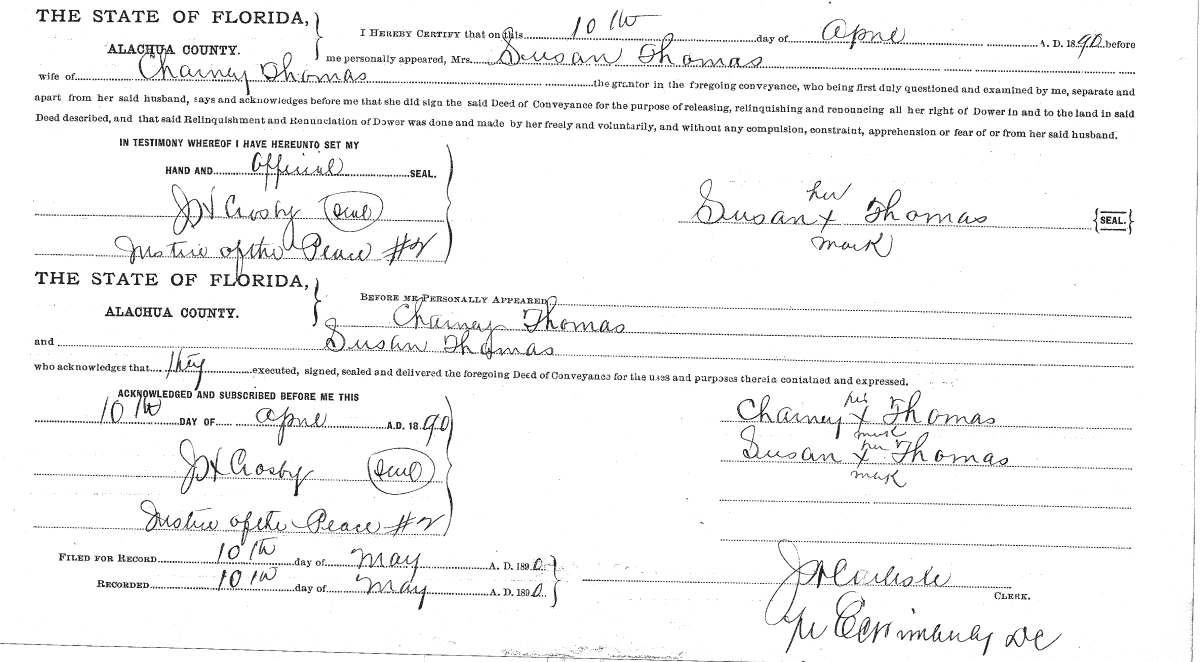 THE STATE OF FLORIDA,
ALACHUA COUNTY.
I HEREBY CERTIFY that on this 10th day of Apne A. D. 1890. before
me personally appeared, Mrs. Susan Thomas
wife of Charney Thomas the grantor in the foregoing conveyance, who being first duly questioned and examined by me, separate and
apart from her said husband, says and acknowledges before me that she did sign the said Deed of Conveyance for the purpose of releasing, relinquishing and renouncing all her right of Dower in and to the land in said
Deed described, and that said Relinquishment and Renunciation of Dower was done and made by her freely and voluntarily, and without any compulsion, constraint, apprehension or fear of or from her said husband.
IN TESTIMONY WHEREOF I HAVE HEREUNTO SET MY
HAND AND Official SEAL.
Crosby Seal
Justice of the Peace #2
her
Susan x Thomas {SEAL.}
mark
THE STATE OF FLORIDA,
ALACHUA COUNTY.
BEFORE ME PERSONALLY APPEARED
Charney Thomas
and Susan Thomas
who acknowledges that they executed, signed, sealed and delivered the foregoing Deed of Conveyance for the uses and purposes therein contained and expressed.
ACKNOWLEDGED AND SUBSCRIBED BEFORE ME THIS
10th DAY OF Apne A.D. 1890
Crosby Seal
Justice of the Peace #2
his
Charney x Thomas
mark
her
Susan x Thomas
mark
FILED FOR RECORD 10th day of May A. D. 1890
RECORDED 10th day of May A. D. 1890
Carlisle
CLERK.
DC